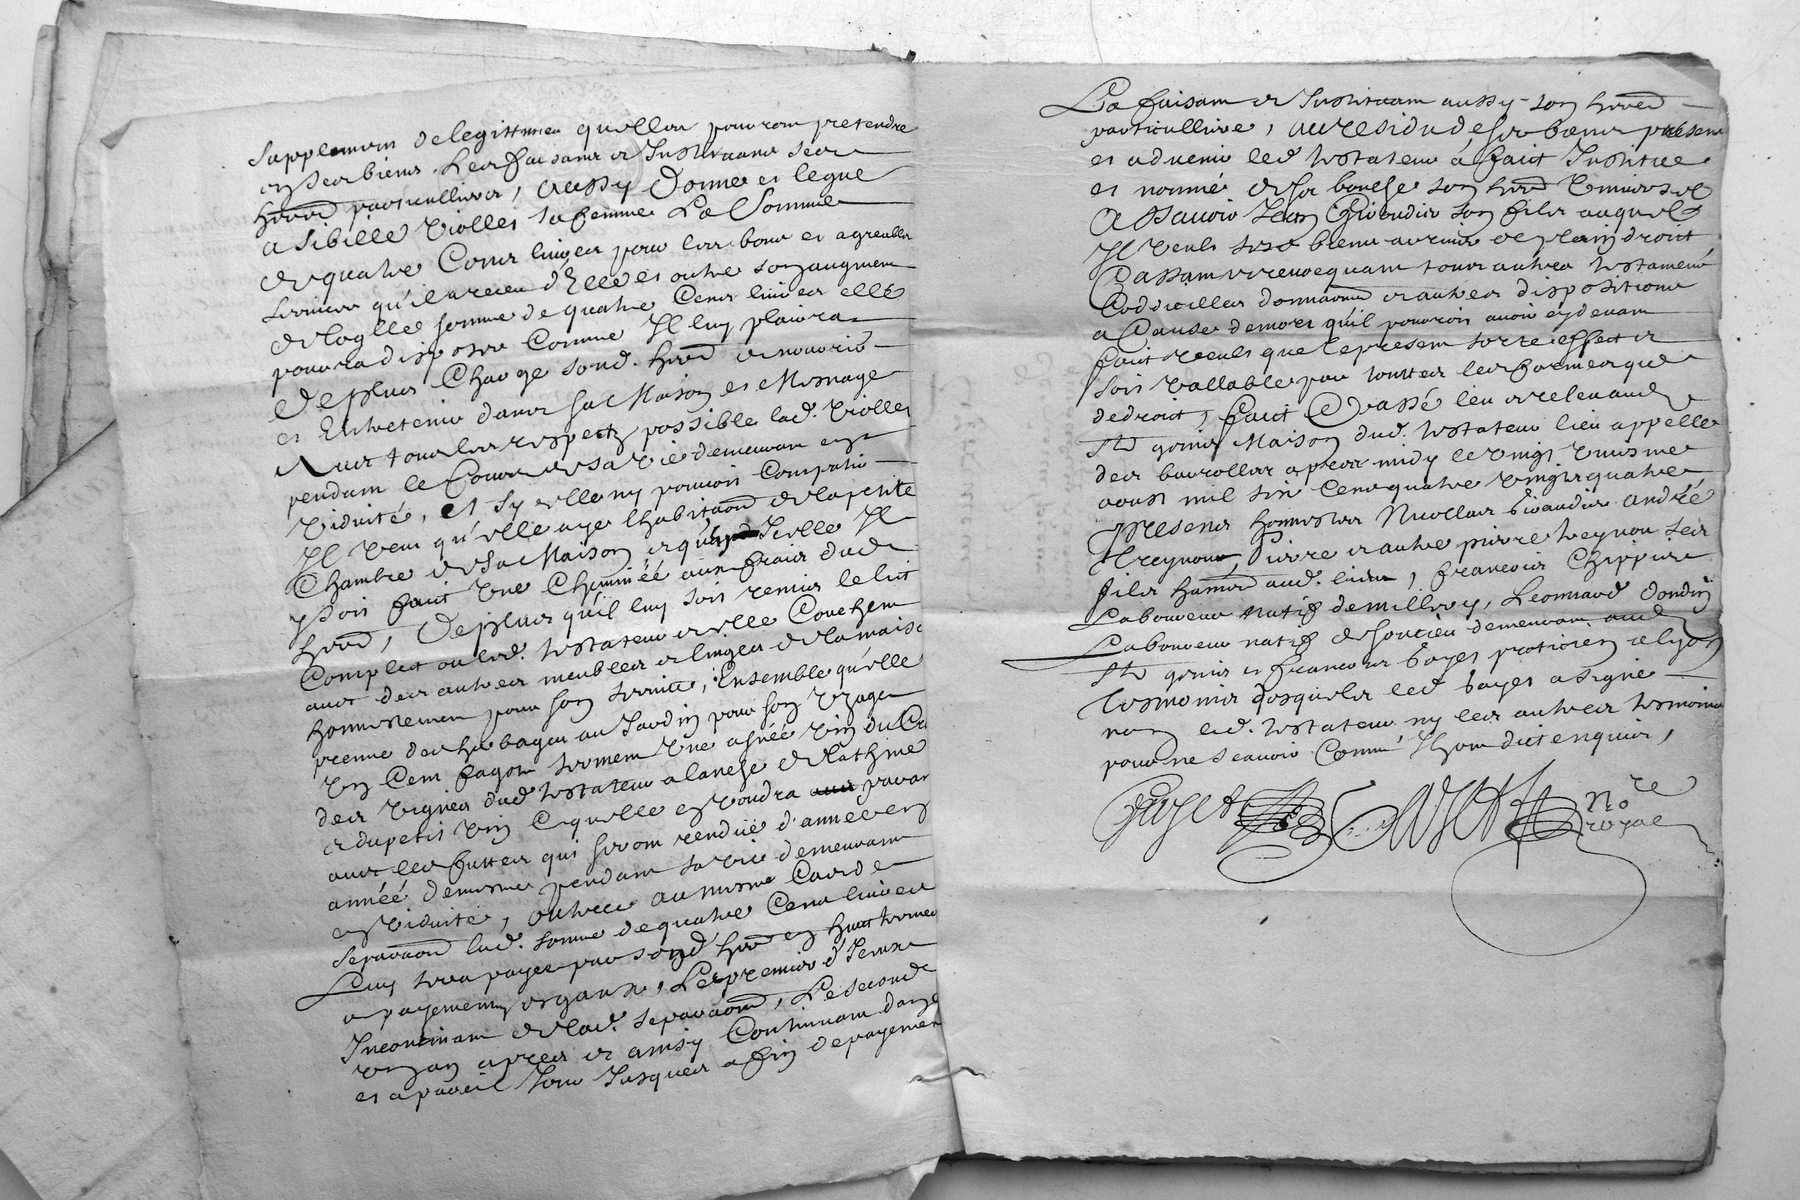 supplement de legittimes quelles pourroint pretendre
en ses biens. Les faisant et Instituant ses
herers particullieres, aussy donne et legue
a Sibille Violles sa femme La Somme
de quatre Cents livres pour les bons et agreables
services qu'il a receu d'Elle et outre son augment
de laqlle somme de quatre Cents livres elle
pourra disposer Comme Il luy plairra
De plus Charge sond. herer de nourrir
et Entretenir dans sa Maison et Mesnage
Avec tous les respects possible lad. Violles
pendant le Cours de sa vie demeurant en
Viduité, et sy elle ny pouvoit Compatir
Il veut qu'elle aye l'habitaon de la petite
Chambre de sa Maison et qu'en Icelle Il
y soit fait Une Cheminée aux frais dud.
herer, De plus qu'il luy soit remis le lict
Complect ou led. testateur et elle Couchent
avec des autres meubles et linges de la maiso
honnestement pour son service, Ensemble qu'elle
prenne des herbages au Jardin pour son Uzage
Un Cent fagots srment Une asnée Vin du Cru
des Vignes dud testateur a l'anche de la thine
et du petit vin Ce quelle en voudra avec
avec les futtes qui seront rendüe d'année en
année de mesme pendant sa vie demeurant
en Viduité, outre ce au mesme Cas de
separaon lad. somme de quatre Cens livres
Luy sera payée par sond herer en huict termes
et payements esgaux, Le premier d'Iceux
Incontinant de lad. separaon, Le second
un an apres et ainsy Continuant d'an
et a pareil Jour Jusques a fin de payement
La faisant et Instituant aussy son herer
particulliere, au residu de ses biens present
et advenir led testateur a faict Institue
et nommé de sa bouche son herer Universel
A sçavoir Jean Giraudier son filz auquel
Il veult sesd biens arriver de plein droict
Cassant et revocquant tous autres testament
Coddicilles donnaons et autres dispositions
a Cause de mort qu'il pourroit avoir cy devant
faict veult que le present sorte effect et
soit vallable par touttes les formes que
de droict, faict et passé leu et releu aud
St genis Maison dud. testateur lieu appelle
des barolles apres midy le vingt Uniesme
aoust mil six Cens quatre Vingts quatre
presents honnestes Nicollas Giraudier André
Treynou, pierre et autre pierre treynou ses
filz habitants aud. lieu, francois Chippier
Laboureur natif de millery, Leonnard Dondin
Laboureur natif de Soucieu demeurant aud
St genis et francois bayet praticien a lyon
tesmoins desquels led bayet a signé
non led. testateur ny les autres tesmoins
pour ne scavoir Comme Ilz ont dict enquis,
Bayet Gayet No.re
royal